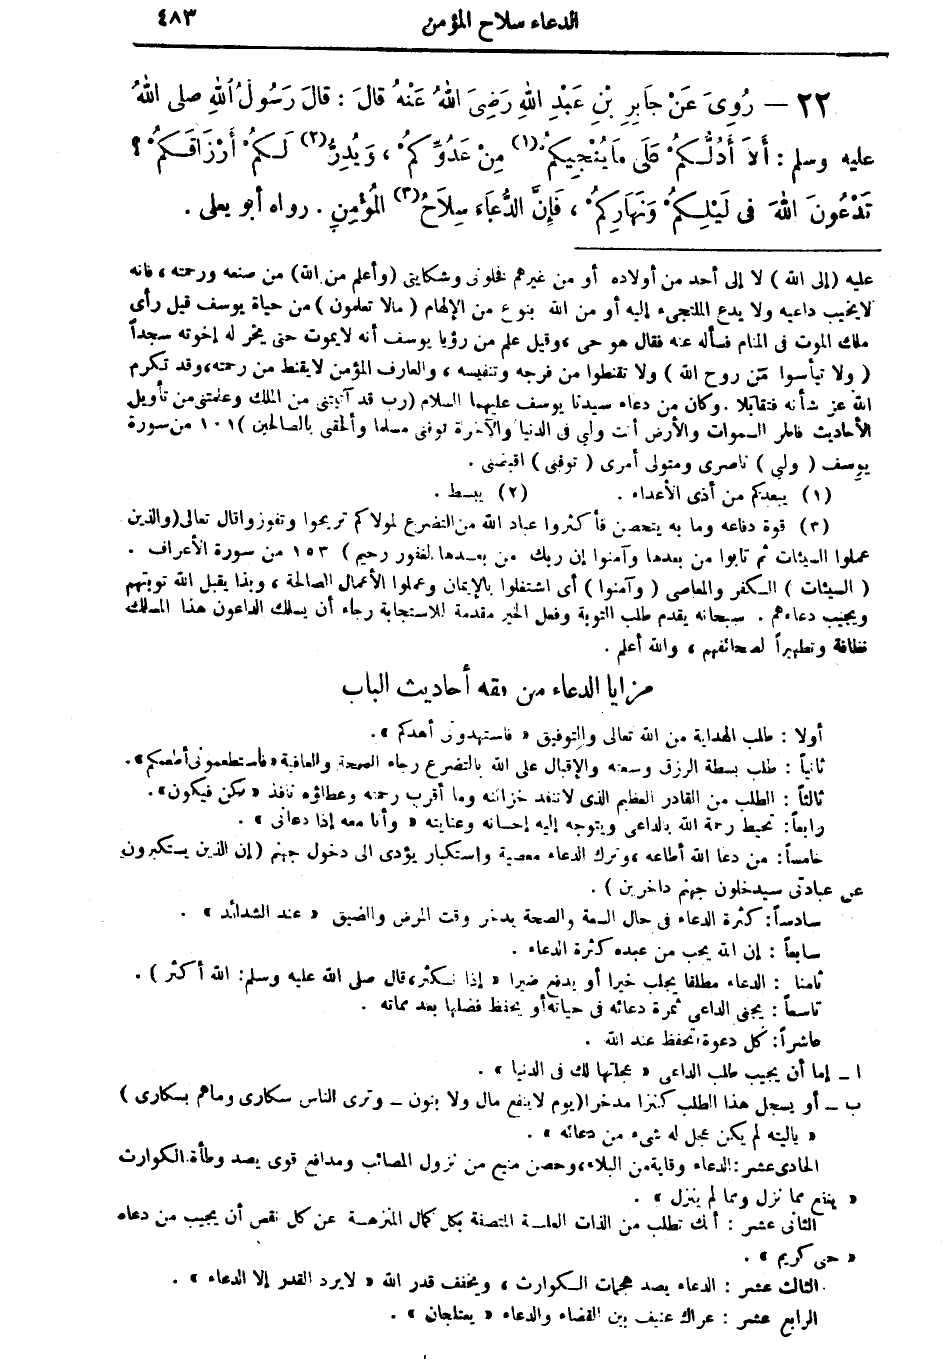 الدعاء سلاح المؤمن ٤٨٣
٢٢ — رُوِىَ عَنْ جَابِرِ بْنِ عَبْدِ اللهِ رَضِىَ اللهُ عَنْهُ قالَ : قالَ رَسُولُ اللهِ صلى اللهُ
عليه وسلم : أَلاَ أَدُلُّكُمْ عَلَى مَا يُنْجِيكُمْ (١) مِنْ عَدُوِّكُمْ ، وَيُدِرُّ (٢) لَكُمْ أَرْزَاقَكُمْ ؟
تَدْعُونَ اللهَ فى لَيْلِكُمْ وَنَهَارِكُمْ ، فَإِنَّ الدُّعَاءَ سِلاَحُ (٣) المُؤْمِنِ . رواه أبو يعلى .
عليه (إلى الله ) لا إلى أحد من أولاده أو من غيرهم فخلونى وشكايتى (وأعلم من الله) من صنعه ورحمته ، فانه
لايخيب داعيه ولا يدع الملتجىء إليه أو من الله بنوع من الإلهام ( مالا تعلمون ) من حياة يوسف قيل رأى
ملك الموت فى المنام فسأله عنه فقال هو حى ، وقيل علم من رؤيا يوسف أنه لايموت حتى يخر له إخوته سجداً
( ولا تيأسوا من روح الله ) ولا تقنطوا من فرجه وتنفيسه ، والعارف المؤمن لايقنط من رحمته ، وقد تكرم
الله عز شأنه فتقابلا . وكان من دعاء سيدنا يوسف عليهما السلام (رب قد آتيتنى من الملك وعلمتنى من تأويل
الأحاديث فاطر السموات والأرض أنت ولي فى الدنيا والآخرة توفنى مسلما وألحقنى بالصالحين ) ١٠١ من سورة
يوسف ( ولي ) ناصرى ومتولى أمرى ( توفنى ) اقبضنى .
(١) يبعدكم من أذى الأعداء . (٢) يبسط .
(٣) قوة دفاعه وما به يتحصن فأكثروا عباد الله من التضرع لمولاكم تربحوا وتفوزوا قال تعالى (والذين
عملوا السيئات ثم تابوا من بعدها وآمنوا إن ربك من بعدها لغفور رحيم ) ١٥٣ من سورة الأعراف .
( السيئات ) الكفر والمعاصى ( وآمنوا ) أى اشتغلوا بالإيمان وعملوا الأعمال الصالحة ، وبذا يقبل الله توبتهم
ويجيب دعاءهم . سبحانه يقدم طلب التوبة وفعل الخير مقدمة للاستجابة رجاء أن يسلك الداعون هذا المسلك
نظافة وتطهيراً لصحائفهم ، والله أعلم .
مزايا الدعاء من فقه أحاديث الباب
أولا : طلب الهداية من الله تعالى والتوفيق « فاستهدونى أهدكم » .
ثانياً : طلب بسطة الرزق وسعته والإقبال على الله بالتضرع رجاء الصحة والعافية « فاستطعمونى أطعمكم » .
ثالثاً : الطلب من القادر العظيم الذى لاتنفد خزائنه وما أقرب رحمته وعطاؤه نافذ « كن فيكون » .
رابعاً : تحيط رحمة الله بالداعى ويتوجه إليه إحسانه وعنايته « وأنا معه إذا دعانى » .
خامساً : من دعا الله أطاعه ، وترك الدعاء معصية واستكبار يؤدى الى دخول جهنم (إن الذين يستكبرون
عن عبادتى سيدخلون جهنم داخرين ) .
سادساً : كثرة الدعاء فى حال السعة والصحة يدخر وقت المرض والضيق « عند الشدائد » .
سابعاً : إن الله يحب من عبده كثرة الدعاء .
ثامنا : الدعاء مطلقا يجلب خيرا أو يدفع ضيرا « إذا نكثر ، قال صلى الله عليه وسلم : الله أكثر ) .
تاسعاً : يجنى الداعى ثمرة دعائه فى حياته أو يحفظ فضلها بعد مماته .
عاشراً : كل دعوة تحفظ عند الله .
ا ـ إما أن يجيب طلب الداعى « عجلتها لك فى الدنيا » .
ب ـ أو يسجل هذا الطلب كنزا مدخرا (يوم لاينفع مال ولا بنون ـ وترى الناس سكارى وماهم بسكارى )
« ياليته لم يكن عجل له شىء من دعائه » .
الحادى عشر : الدعاء وقاية من البلاء ، وحصن منيع من نزول المصائب ومدافع قوى يصد وطأة الكوارث
« ينفع مما نزل ومما لم ينزل » .
الثانى عشر : أنك تطلب من الذات العلية المتصفة بكل كمال المنزهة عن كل نقص أن يجيب من دعاه
« حى كريم » .
الثالث عشر : الدعاء يصد هجمات الكوارث ، ويخفف قدر الله « لا يرد القدر إلا الدعاء » .
الرابع عشر : عراك عنيف بين القضاء والدعاء « يعتلجان » .